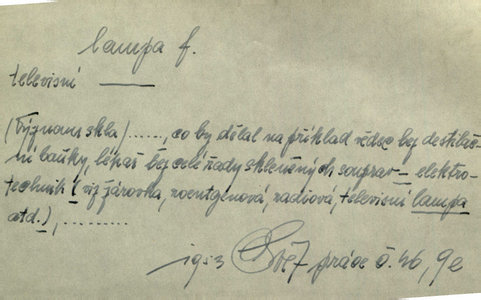 lampa f.
televisní ———
(Význam skla) ......, co by dělal na příklad vědec bez destilač-
ní baňky, lékař bez celé řady skleněných souprav – elektro-
technik (viz žárovka, roentgenová, radiová, televisní lampa
atd.), .........
1953 Svět práce č. 46, 9e